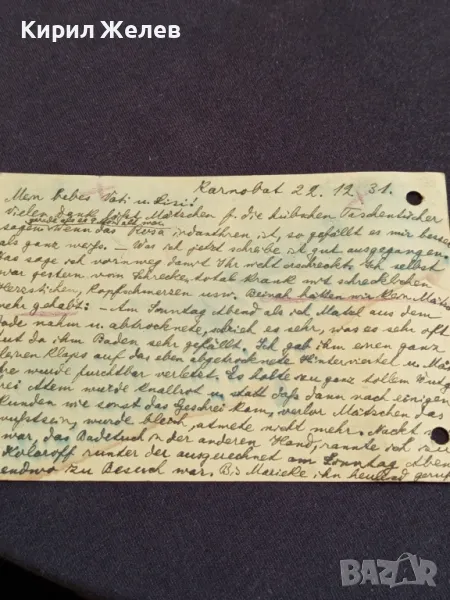 Кирил Желев
Karnobat 22. 12. 31.
Mein liebes Vati u. Susi!
Vielen Dank f. die hübschen Taschentücher
sagen. Wenn das Rosa ist, so gefällt es mir besser
als ganz weiss. – Was ich jetzt schreibe ist gut ausgegangen.
Das sage ich vorweg damit Ihr nicht erschreckt. Ich selbst
war gestern vom Schreck total krank mit schrecklichen
Herzstichen, Kopfschmerzen usw. Beinah hätten wir kein
mehr gehabt: – Am Sonntag Abend als ich aus dem
Bade nahm u. abtrocknete, schrie es sehr, was es sehr oft
tut da ihm Baden sehr gefällt. Ich gab ihm einen ganz
kleinen Klaps auf das eben abgetrocknete Hinterviertel u.
wurde furchtbar verletzt. Es holte zu ganz tollem
Atem wurde knallrot u. statt dass dann nach einigen
Sekunden wie sonst das Geschrei kam, verlor Mätschen das
Bewusstsein, wurde bleich, atmete nicht mehr. Nackt
war, das Badetuch in der anderen Hand, rannte ich zu
runter der ausgerechnet am Sonntag Abend
irgendwo zu Besuch war. Bis Marieke ihn heulend
BAZAR.BG